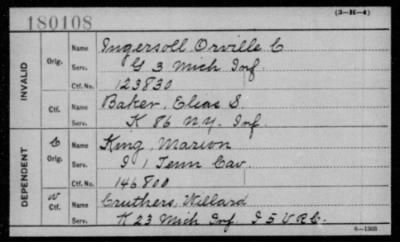 180108
(3-H-4)
INVALID
Orig.
Name Ingersoll Orville C
Serv. G 3 Mich Inf
Ctf. No. 123830
Ctf.
Name Baker, Elias S.
Serv. K 86 N.Y. Inf.
DEPENDENT
C
Orig.
Name King, Marion
Serv. I 1 Tenn Cav.
Ctf. No. 146800
W
Ctf.
Name Cruthers, Willard
Serv. K 23 Mich Inf I 5 V.R.C.